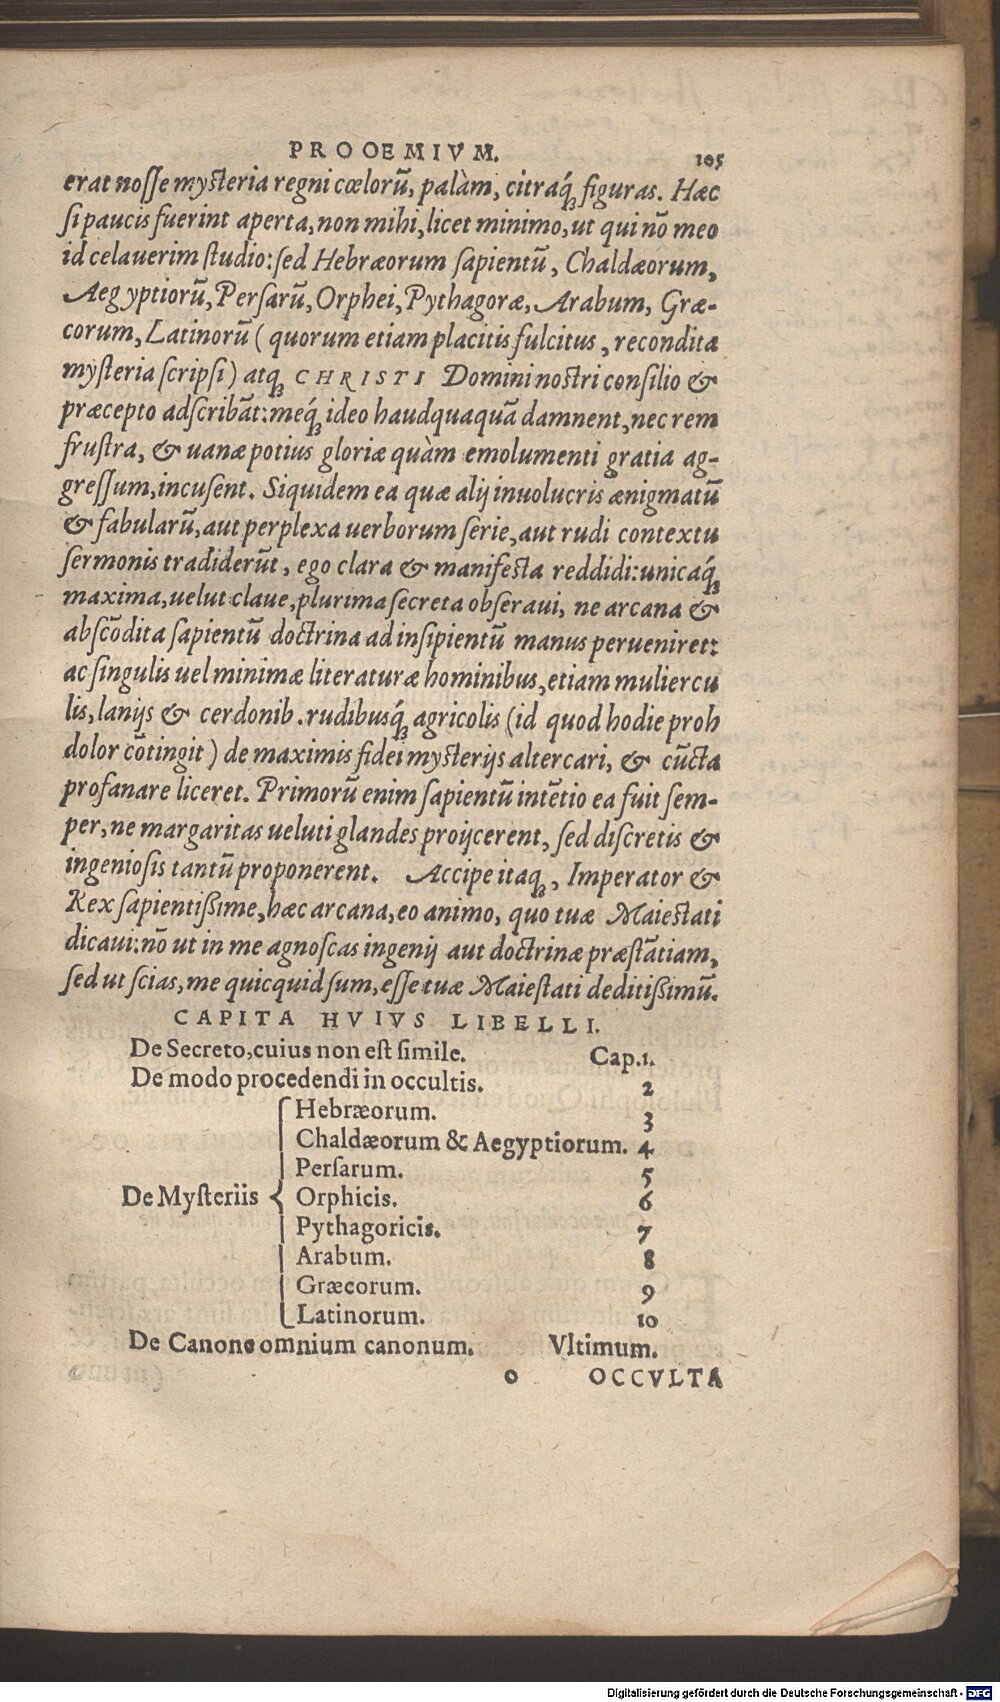 PROOEMIVM. 105
erat nosse mysteria regni cœlorū, palàm, citraq́ꝫ figuras. Hæc
si paucis fuerint aperta, non mihi, licet minimo, ut qui nō meo
id celauerim studio: sed Hebræorum sapientū, Chaldæorum,
Aegyptiorū, Persarū, Orphei, Pythagoræ, Arabum, Græ-
corum, Latinorū ( quorum etiam placitis fulcitus, recondita
mysteria scripsi ) atqꝫ CHRISTI Domini nostri consilio &
præcepto adscribāt: meq́ꝫ ideo haudquaquā damnent, nec rem
frustra, & uanæ potius gloriæ quàm emolumenti gratia ag-
gressum, incusent. Siquidem ea quæ alij inuolucris ænigmatū
& fabularū, aut perplexa uerborum serie, aut rudi contextu
sermonis tradiderūt, ego clara & manifesta reddidi: unicaq́ꝫ
maxima, uelut claue, plurima secreta obseraui, ne arcana &
abscōdita sapientū doctrina ad insipientū manus perueniret:
ac singulis uel minimæ literaturæ hominibus, etiam muliercu
lis, lanijs & cerdonib. rudibusq́ꝫ agricolis (id quod hodie proh
dolor cōtingit ) de maximis fidei mysterijs altercari, & cūcta
profanare liceret. Primorū enim sapientū intētio ea fuit sem-
per, ne margaritas ueluti glandes proijcerent, sed discretis &
ingeniosis tantū proponerent. Accipe itaqꝫ, Imperator &
Rex sapientißime, hæc arcana, eo animo, quo tuæ Maiestati
dicaui: nō ut in me agnoscas ingenij aut doctrinæ præstātiam,
sed ut scias, me quicquid sum, esse tuæ Maiestati deditißimū.
CAPITA HVIVS LIBELLI.
De Secreto, cuius non est simile. Cap. 1.
De modo procedendi in occultis. 2
Hebræorum. 3
Chaldæorum & Aegyptiorum. 4
Persarum. 5
De Mysteriis { Orphicis. 6
Pythagoricis. 7
Arabum. 8
Græcorum. 9
Latinorum. 10
De Canone omnium canonum. Vltimum.
o OCCVLTA
Digitalisierung gefördert durch die Deutsche Forschungsgemeinschaft - DFG